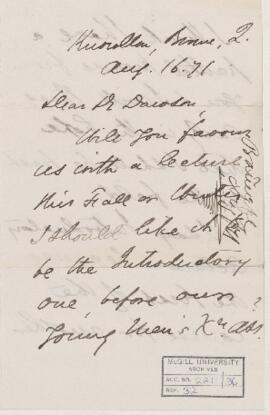 Knowlton, Brome, Q.
Aug. 16. 71
Dear Dr Dawson,
Will you favour
us with a lecture
this Fall or Winter
I should like it to
be the Introductory
one, before our
Young Men's Xn Ass.
McGILL UNIVERSITY
ARCHIVES
ACC. NO. 221 / 36
REF. 32